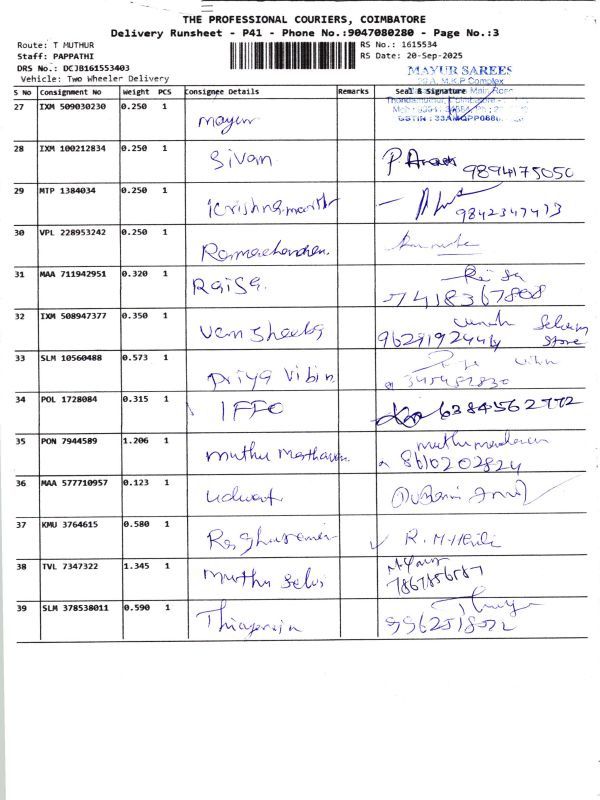 THE PROFESSIONAL COURIERS, COIMBATORE
Delivery Runsheet - P41 - Phone No.:9047080280 - Page No.:3
Route: T MUTHUR
RS No.: 1615534
Staff: PAPPATHI
RS Date: 20-Sep-2025
DRS No.: DCJB161553403
Vehicle: Two Wheeler Delivery
MAYUR SAREES
S No Consignment No Weight PCS Consignee Details Remarks Seal & Signature
27 IXM 509030230 0.250 1 mayur
28 IXM 100212834 0.250 1 Sivan 9894175050
29 MTP 1384034 0.250 1 Krishnamarth 9842347473
30 VPL 228953242 0.250 1 Ramachandran.
31 MAA 711942951 0.320 1 Raisa. 7418367808
32 IXM 508947377 0.350 1 9629192444 Store
33 SLM 10560488 0.573 1 Priya Vibin
34 POL 1728084 0.315 1 IFFO 6384562772
35 PON 7944589 1.206 1 muthu 8610202824
36 MAA 577710957 0.123 1
37 KMU 3764615 0.580 1 Raghuraman
38 TVL 7347322 1.345 1 muthu selvi
39 SLM 378538011 0.590 1 Thiyagaraja